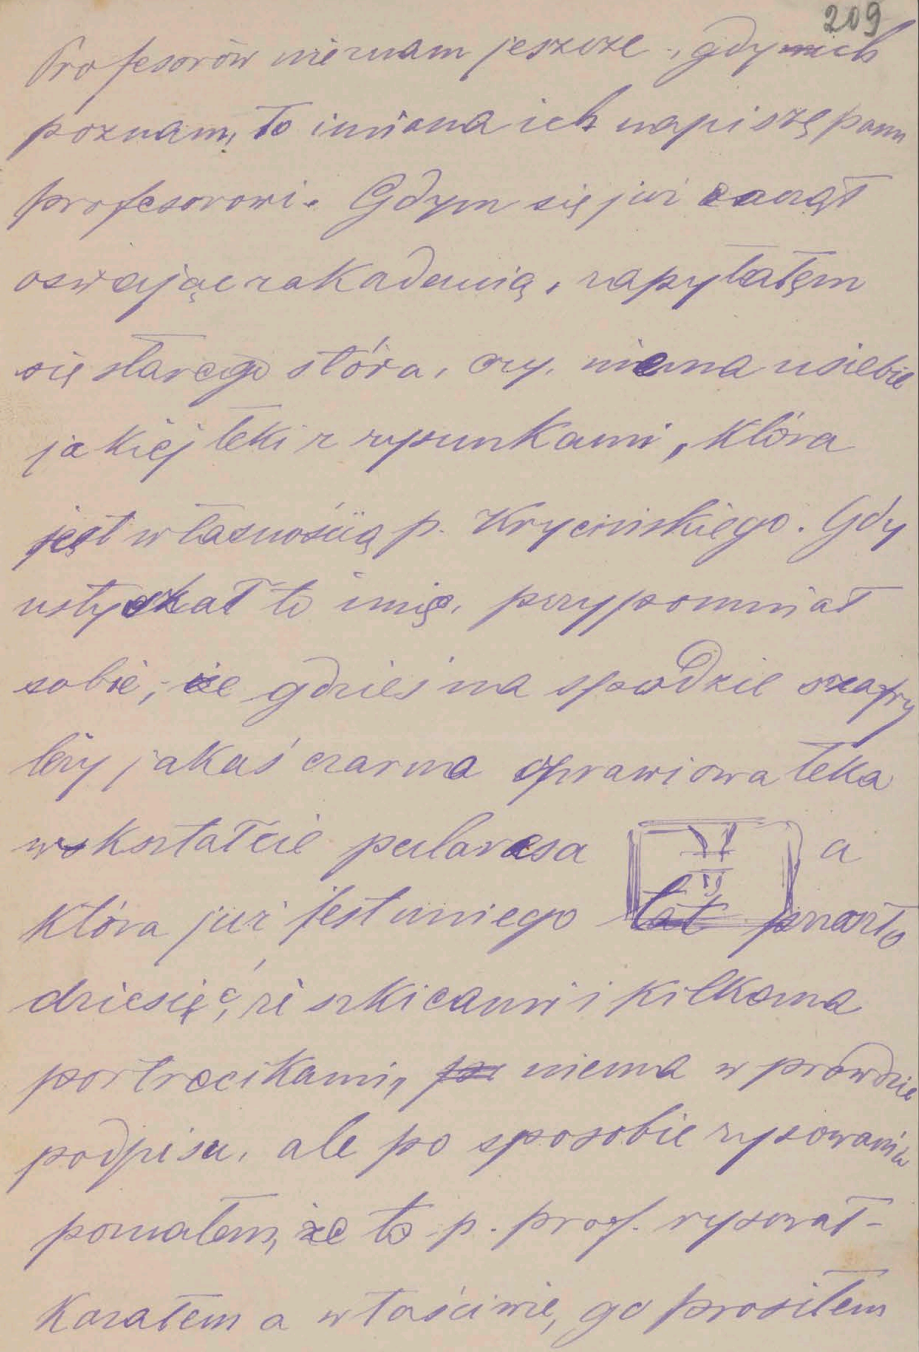 209
Profesorów nieznam jeszcze, gdy ich
poznam, to imiona ich napiszę panu
profesorowi. Gdym się już zaczął
oswajać z akademią, zapytałem
się starego stóra, czy, niema u siebie
jakiéj teki z rysunkami, która
jest własnością p. Krycińskiego. Gdy
usłyszał to imię, przypomniał
sobie, że gdzieś na spodzie szafy
leży jakaś czarna oprawiona teka
w kształcie pularesa a
która już jest u niego lat przeszło
dziesięć, ze szkicami i kilkoma
portrecikami, niema wprawdzie
podpisu, ale po sposobie rysowania
poznałem, że to p. prof. rysował-
Kazałem a właściwie, go prosiłem